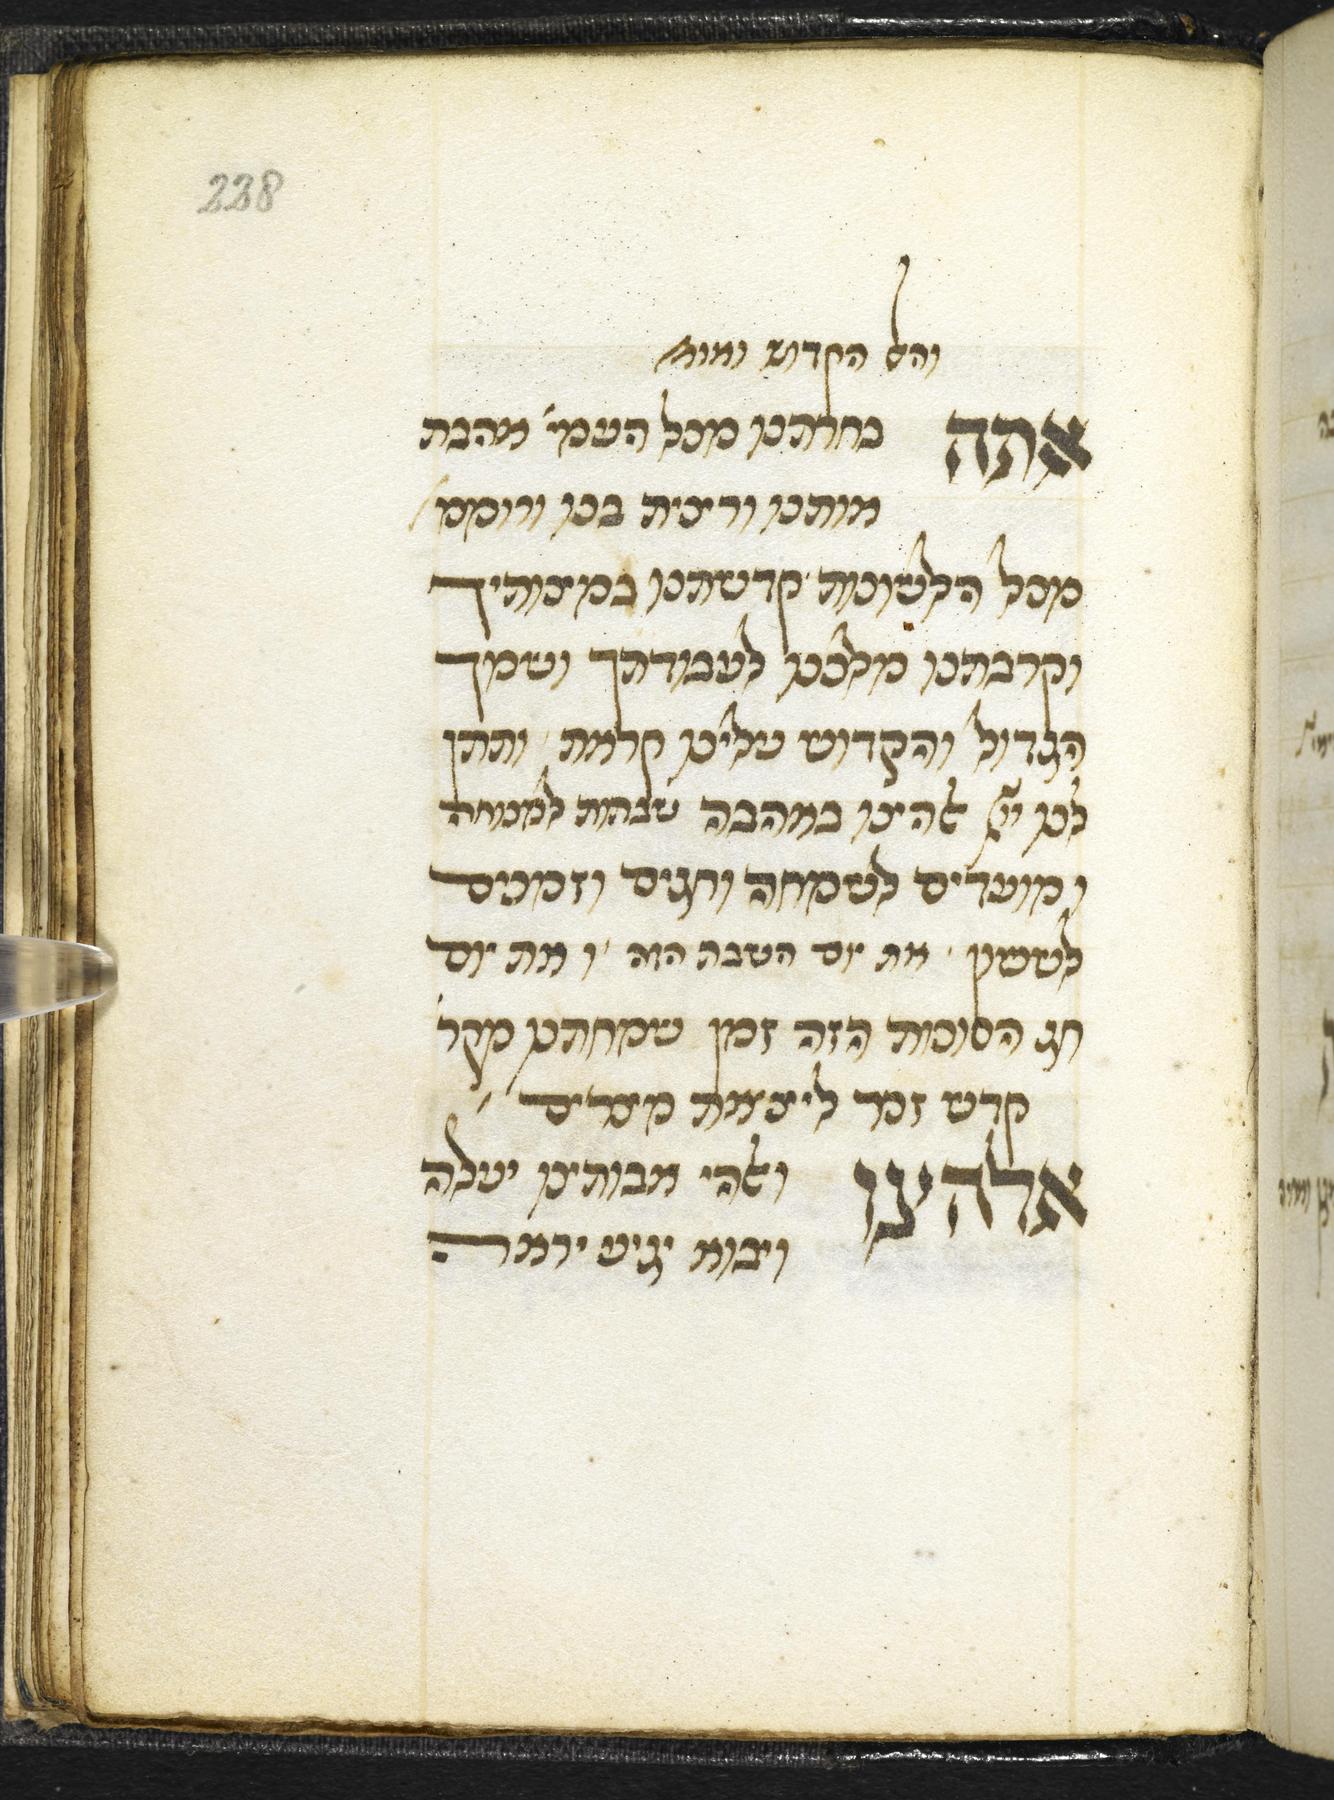 228
והאל הקדוש ואומ'
אתה בחרתנו מכל העמי' אהבת
אותנו ורצית בנו ורוממ'
מכל הלשונות קדשתנו במצותיך
וקרבתנו מלכנו לעבודתך ושמך
הגדול והקדוש עלינו קראת ותתן
לנו יי' אלהינו באהבה שבתות למנוחה
ומועדים לשמחה וחגים וזמנים
לששון את יום השבת הזה ואת יום
חג הסוכות הזה זמן שמחתנו מקר'
קדש זכר ליציאת מצרים
אלהינו ואלהי אבותינו יעלה
ויבוא יגיע יראה